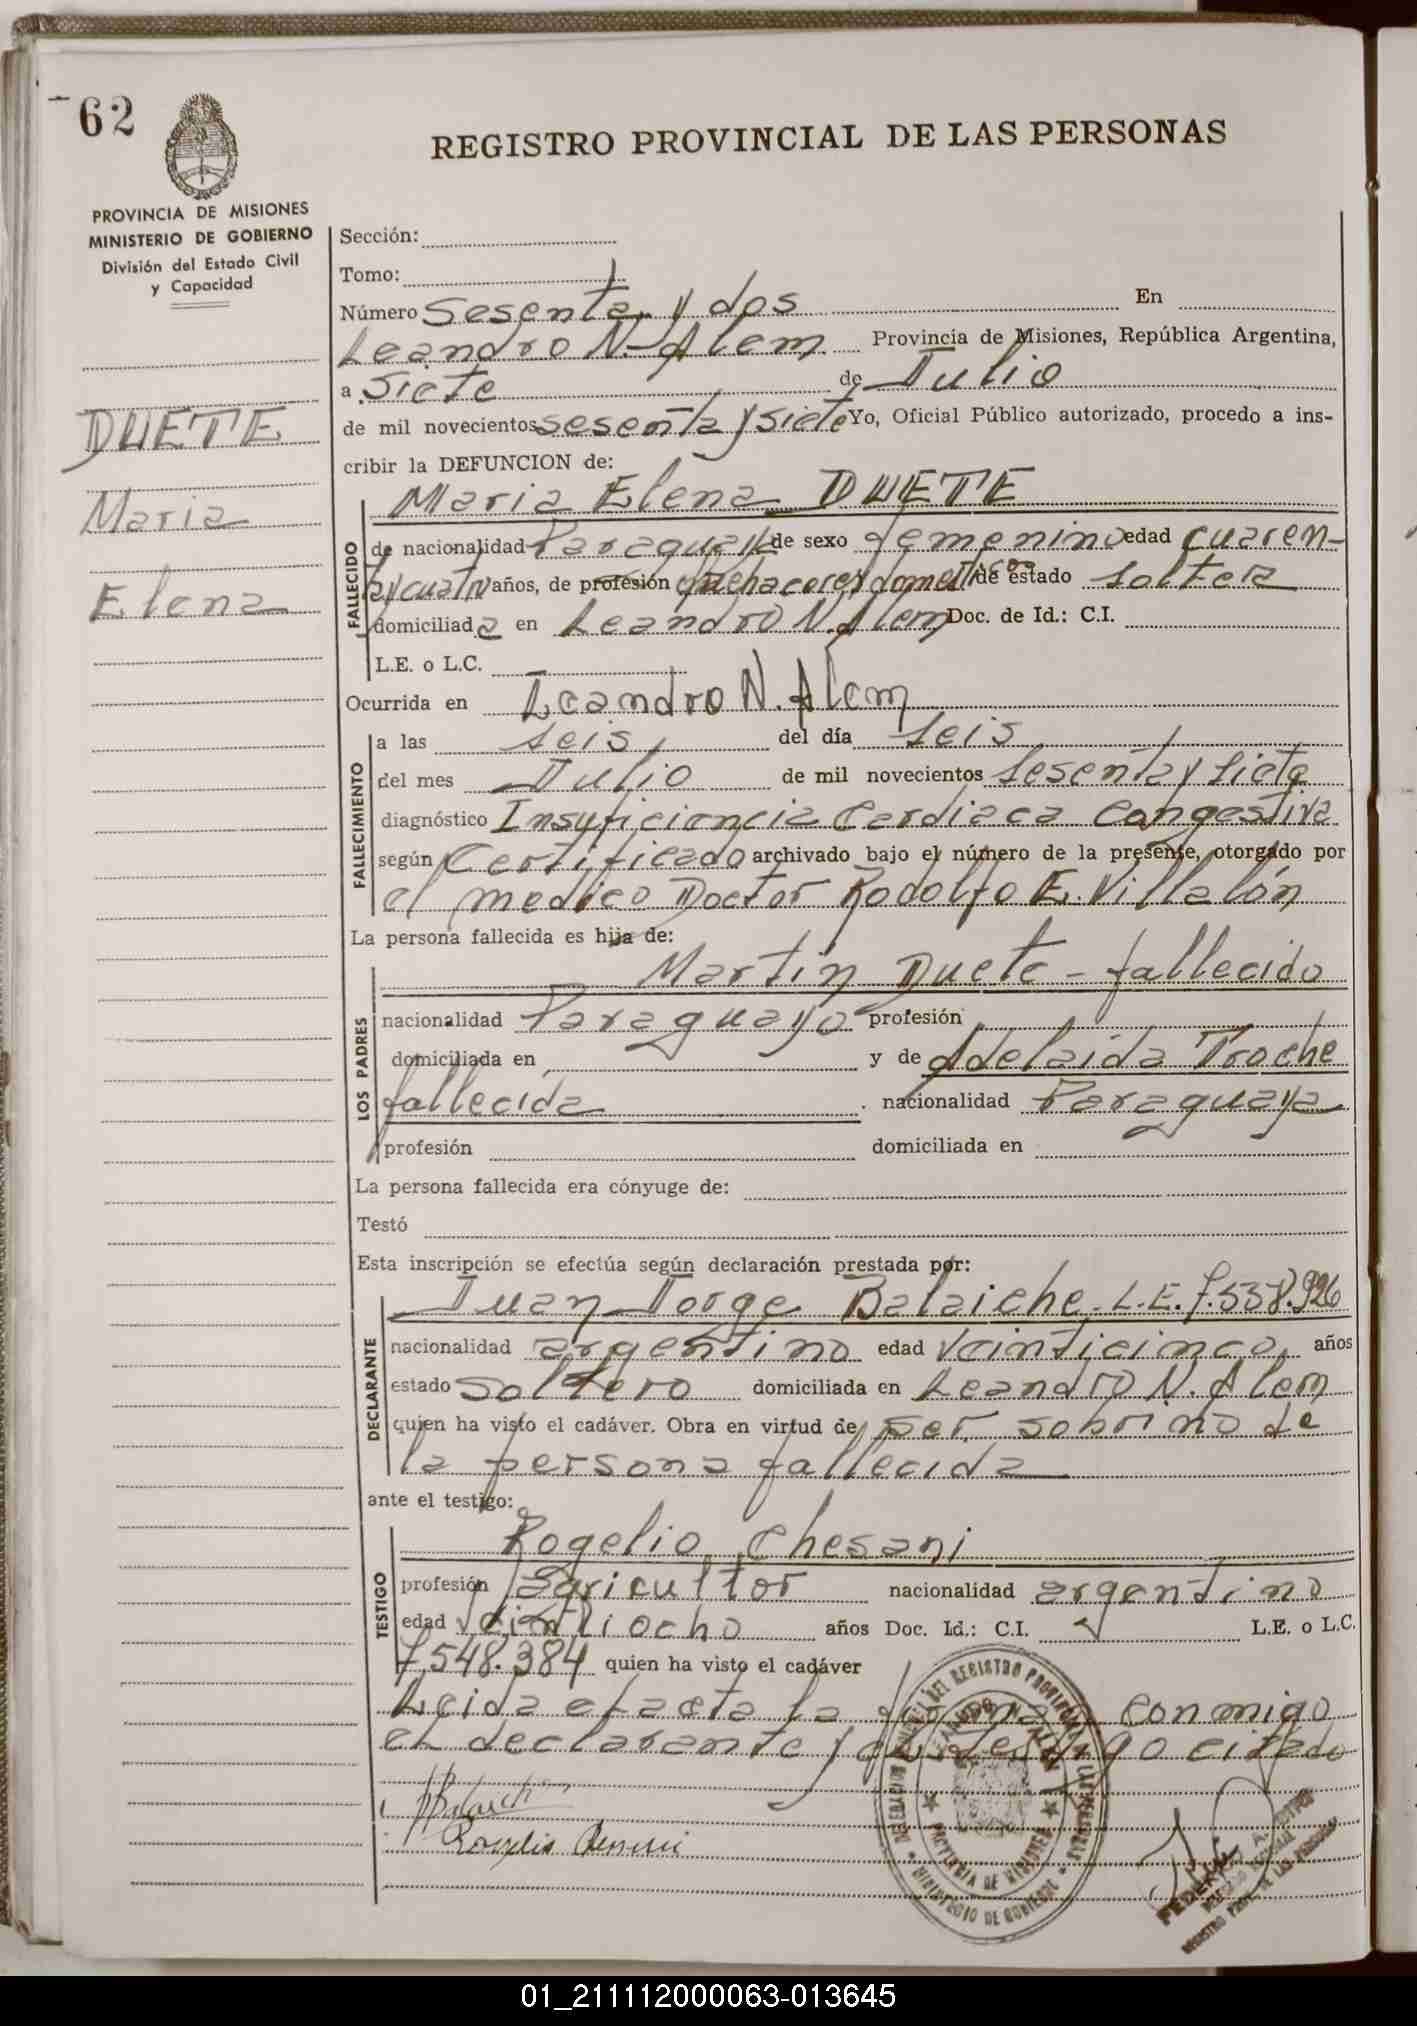 62
REGISTRO PROVINCIAL DE LAS PERSONAS
PROVINCIA DE MISIONES
MINISTERIO DE GOBIERNO
División del Estado Civil
y Capacidad
DUETE
Maria
Elena
Sección:
Tomo:
Número Sesenta y dos En
Leandro N. Alem Provincia de Misiones, República Argentina,
a Siete de Julio
de mil novecientos sesenta y siete Yo, Oficial Público autorizado, procedo a ins-
cribir la DEFUNCION de:
Maria Elena DUETE
FALLECIDO
de nacionalidad Paraguaya de sexo femenino edad cuaren-
ta y cuatro años, de profesión quehaceres domesticos de estado soltera
domiciliada en Leandro N. Alem Doc. de Id.: C.I.
L.E. o L.C.
Ocurrida en Leandro N. Alem
FALLECIMIENTO
a las seis, del día seis
del mes Julio de mil novecientos sesenta y siete
diagnóstico Insuficiencia Cardiaca Congestiva
según Certificado archivado bajo el número de la presente, otorgado por
el medico Doctor Rodolfo E. Villalón
La persona fallecida es hija de:
LOS PADRES
Martín Duete - fallecido
nacionalidad Paraguayo profesión
domiciliada en y de Adelaida Troche
fallecida nacionalidad Paraguaya
profesión domiciliada en
La persona fallecida era cónyuge de:
Testó
Esta inscripción se efectúa según declaración prestada por:
DECLARANTE
Juan Jorge Balaiche. L.E. 7.538.926
nacionalidad argentino edad veinticinco años
estado soltero domiciliada en Leandro N. Alem
quien ha visto el cadáver. Obra en virtud de ser sobrino de
la persona fallecida
ante el testigo:
TESTIGO
Rogelio Chesani
profesión agricultor nacionalidad argentino
edad veintiocho años Doc. Id.: C.I. L.E. o L.C.
7.548.384 quien ha visto el cadáver
Leida el acta la firman conmigo
el declarante y el testigo citado
PROVINCIA DE MISIONES
MINISTERIO DE GOBIERNO
01_211112000063-013645